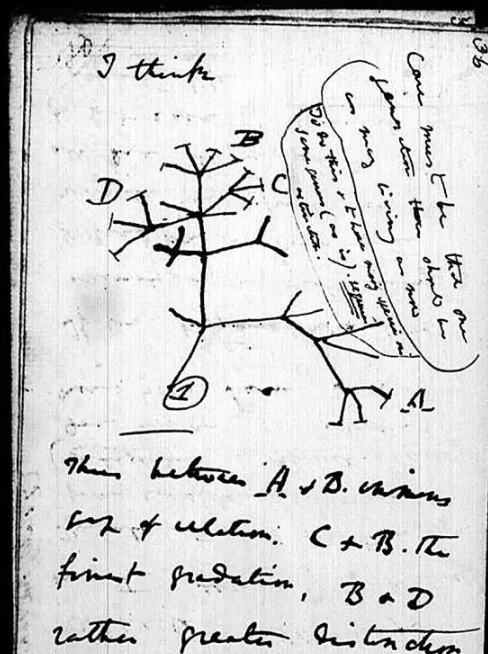 36
I think
Case must be that one
generation then should be
as many living as now
To do this & to have many species in
same genus (as is). requires
extinction.
B
D
C
1
A
Thus between A & B. immens
gap of relation. C & B. the
finest gradation, B & D
rather greater distinction